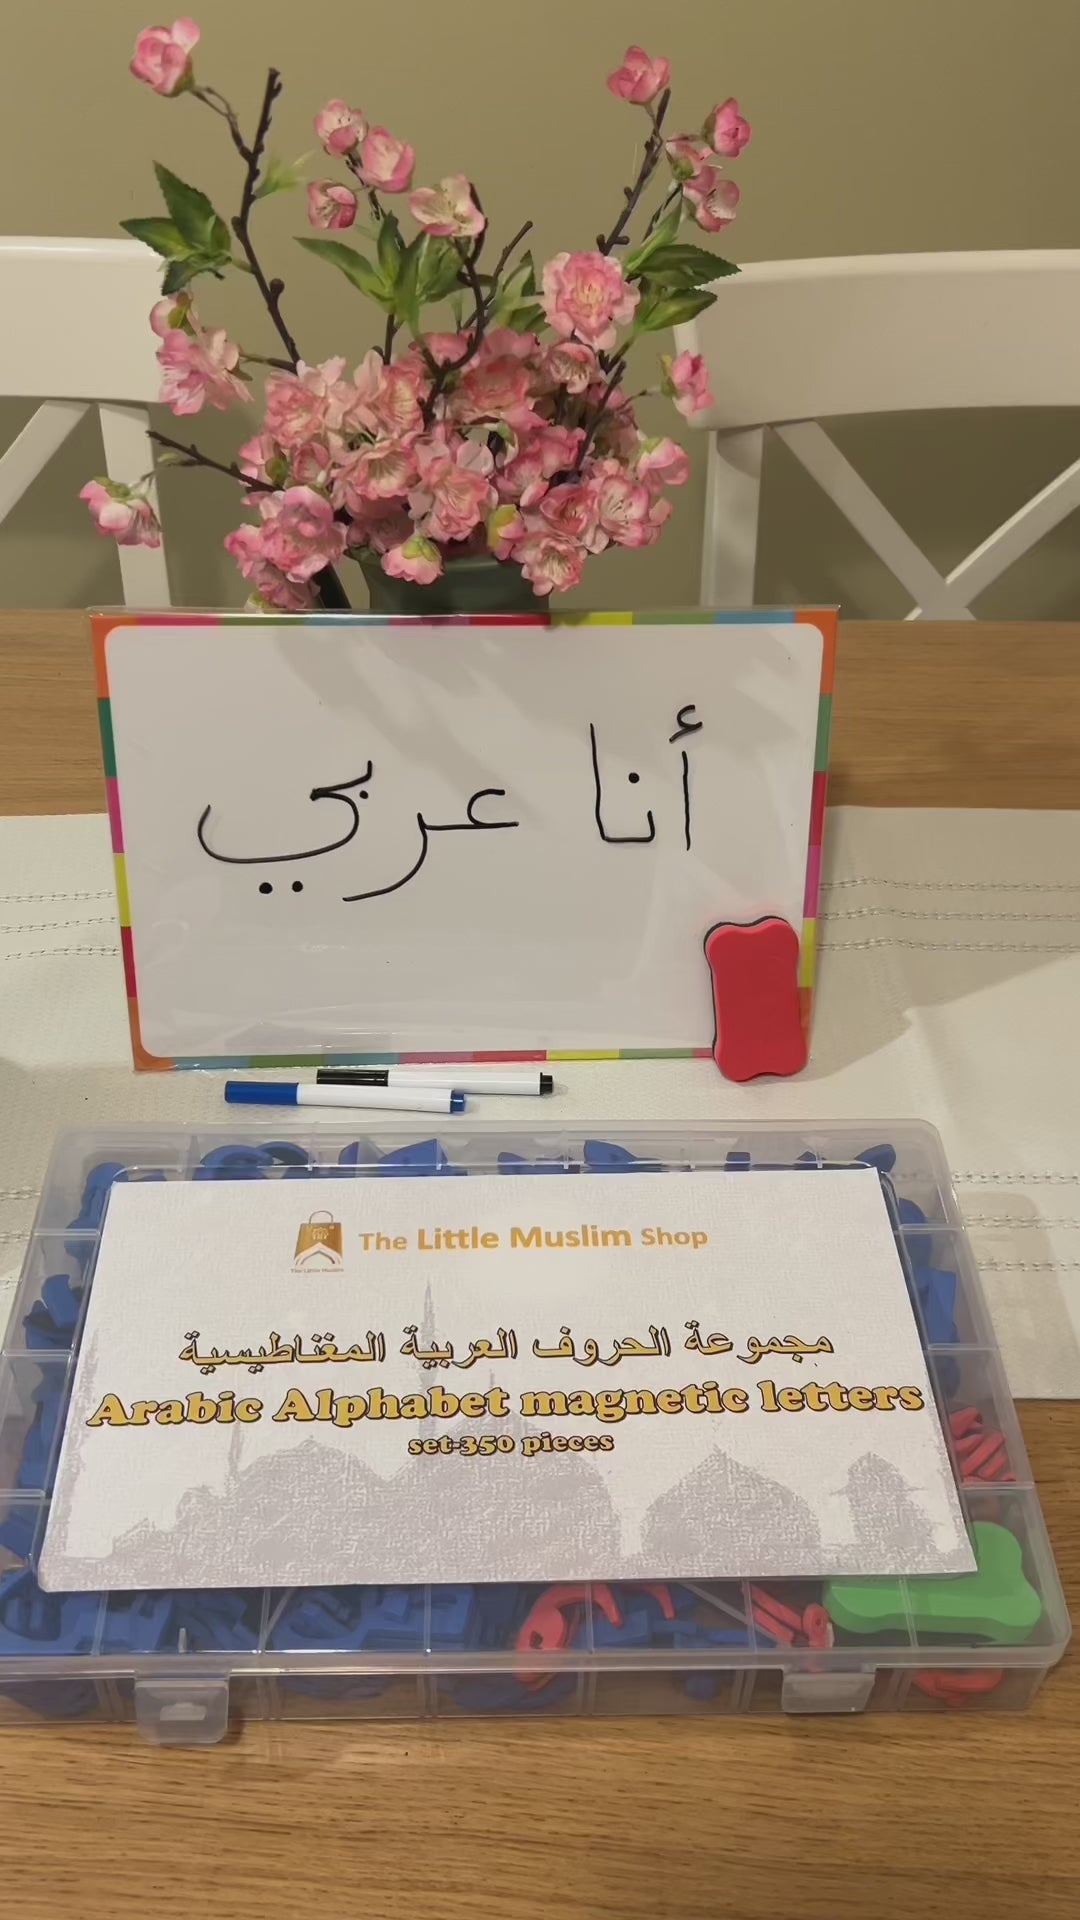 أنا عربي
The Little Muslim Shop
The Little Muslim
مجموعة الحروف العربية المغناطيسية
Arabic Alphabet magnetic letters
set-350 pieces